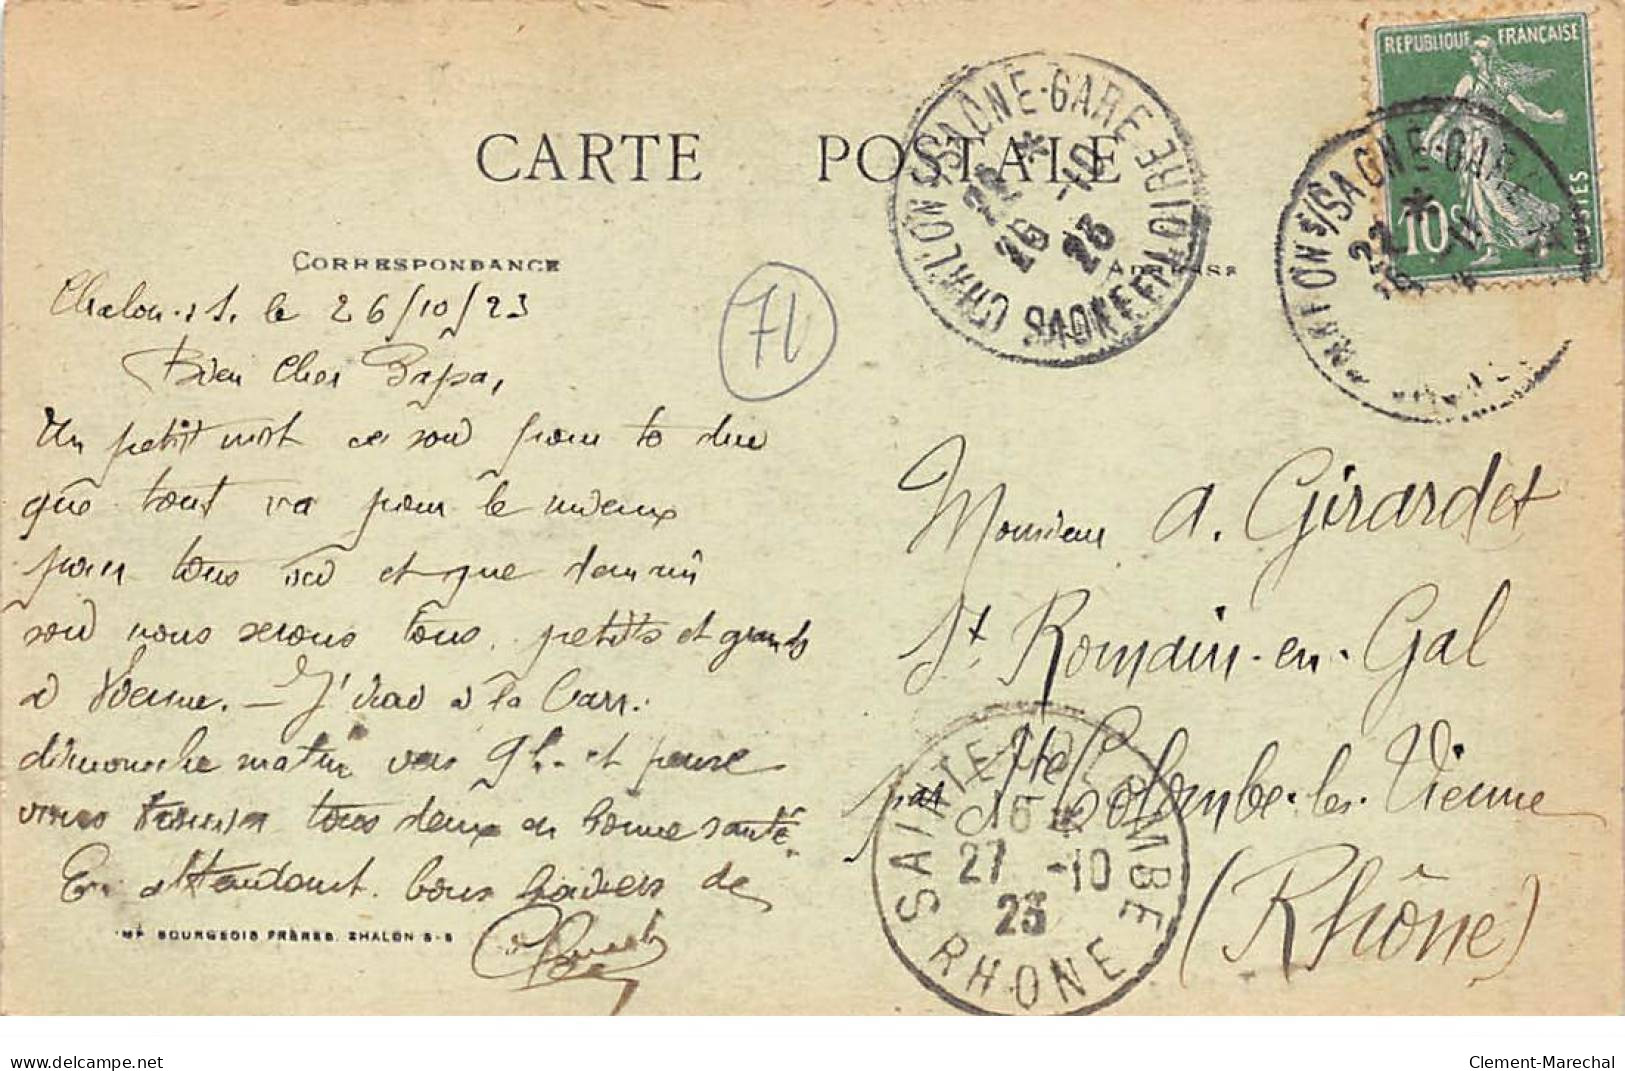 CARTE POSTALE
REPUBLIQUE FRANÇAISE
10c
POSTES
CHALON S/SAONE-GARE
SAONE ET LOIRE
22 * 26 -10 23
S/SAONE-GARE
22 *
CORRESPONDANCE
ADRESSE
71
Chalon s/S. le 26/10/23
Bien Cher Papa,
Un petit mot ce soir pour te dire
que tout va pour le mieux
pour tous ici et que demain
soir nous serons tous, petits et grands
à Vienne. — J'irai à la Carr.
dimanche matin vers 9h. et pense
vous trouver tous deux en bonne santé.
En attendant bons baisers de
IMP. BOURGEOIS FRÈRES. CHALON S-S
Monsieur A. Girardet
St Romain-en-Gal
par Ste Colombe-les-Vienne
(Rhône)
SAINTE-COLOMBE
RHONE
16 * 27 -10 23
delcampe.net
Clement-Marechal